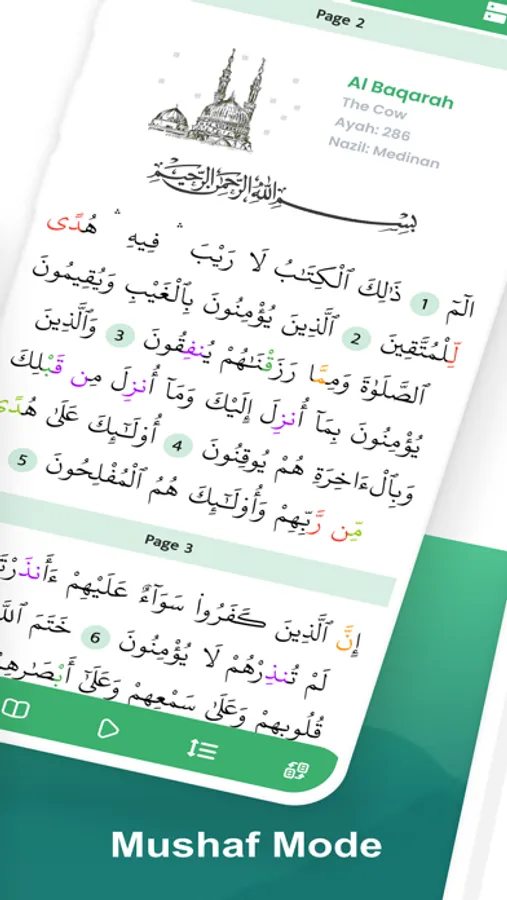 Page 2
Al Baqarah
The Cow
Ayah: 286
Nazil: Medinan
بِسْمِ ٱللَّهِ ٱلرَّحْمَٰنِ ٱلرَّحِيمِ
الٓمٓ 1 ذَٰلِكَ ٱلْكِتَٰبُ لَا رَيْبَ ۛ فِيهِ ۛ هُدًى
لِّلْمُتَّقِينَ 2 ٱلَّذِينَ يُؤْمِنُونَ بِٱلْغَيْبِ وَيُقِيمُونَ
ٱلصَّلَوٰةَ وَمِمَّا رَزَقْنَٰهُمْ يُنفِقُونَ 3 وَٱلَّذِينَ
يُؤْمِنُونَ بِمَآ أُنزِلَ إِلَيْكَ وَمَآ أُنزِلَ مِن قَبْلِكَ
وَبِٱلْءَاخِرَةِ هُمْ يُوقِنُونَ 4 أُو۟لَٰٓئِكَ عَلَىٰ هُدًى
مِّن رَّبِّهِمْ وَأُو۟لَٰٓئِكَ هُمُ ٱلْمُفْلِحُونَ 5
Page 3
إِنَّ ٱلَّذِينَ كَفَرُوا۟ سَوَآءٌ عَلَيْهِمْ ءَأَنذَرْتَ
لَمْ تُنذِرْهُمْ لَا يُؤْمِنُونَ 6 خَتَمَ ٱللَّ
قُلُوبِهِمْ وَعَلَىٰ سَمْعِهِمْ وَعَلَىٰٓ أَبْصَٰرِهِ
Mushaf Mode